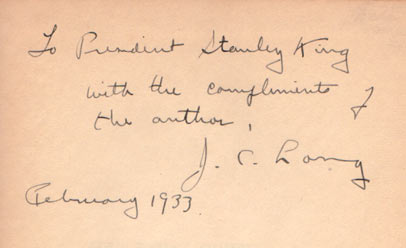 To President Stanley King
with the compliments of
the author,
J. C. Long
February 1933.